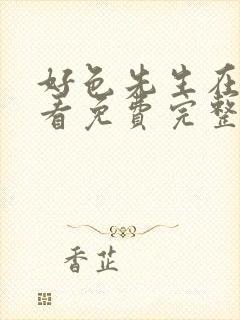 好色先生在
看免费完整
香芷